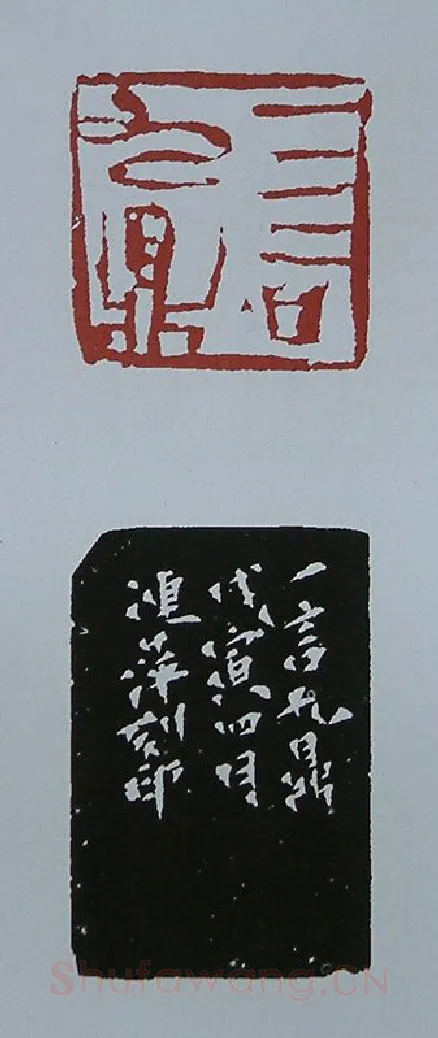 一言九鼎
一言九鼎
戊寅四月
萍刻印
Shufawang.CN